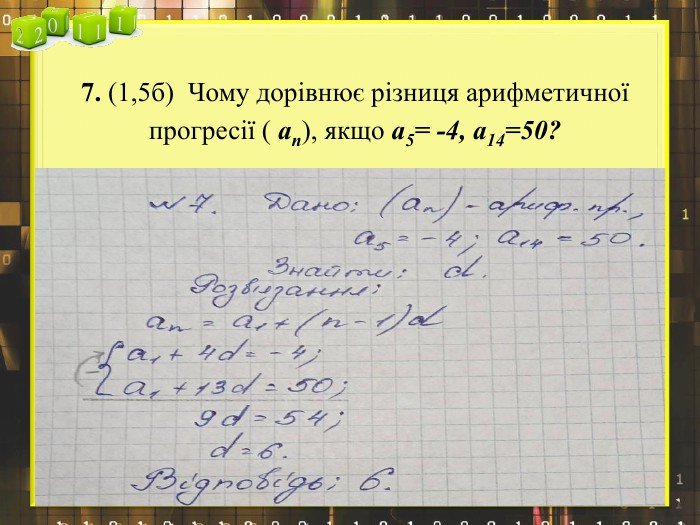 2 2 0 1 1 1
7. (1,5б) Чому дорівнює різниця арифметичної
прогресії ( an), якщо a5= -4, a14=50?
№ 7. Дано: (an) - ариф. пр.,
a5 = - 4; a14 = 50.
Знайти: d.
Розв'язання:
an = a1 + (n - 1)d
{ a1 + 4d = - 4;
(-) a1 + 13d = 50;
9d = 54;
d = 6.
Відповідь: 6.